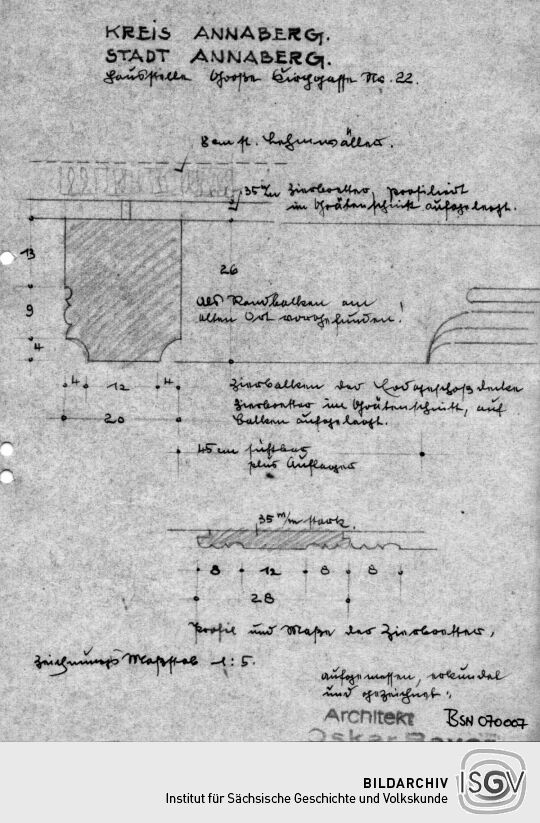 KREIS ANNABERG.
STADT ANNABERG.
Hausstelle Große Kirchgasse No. 22.
8 cm st. Lehmwäller.
35 m/m Zierbretter, profiliert
im Grätenschnitt aufgelegt.
13
26
9
als Randbalken am
alten Ort vorgefunden!
4
4 12 4
Zierbalken der Erdgeschoßdecke
Zierbretter im Grätenschnitt, auf
20
Balken aufgelegt.
45 cm sichtbar
plus Auflager
35 m/m stark.
8 12 8 8
28
Profil und Maße der Zierbretter,
Zeichnungs Maßstab 1:5.
aufgemessen, erkundet
und gezeichnet:
Architekt
BSN 070007
Oskar
BILDARCHIV
Institut für Sächsische Geschichte und Volkskunde
ISGV